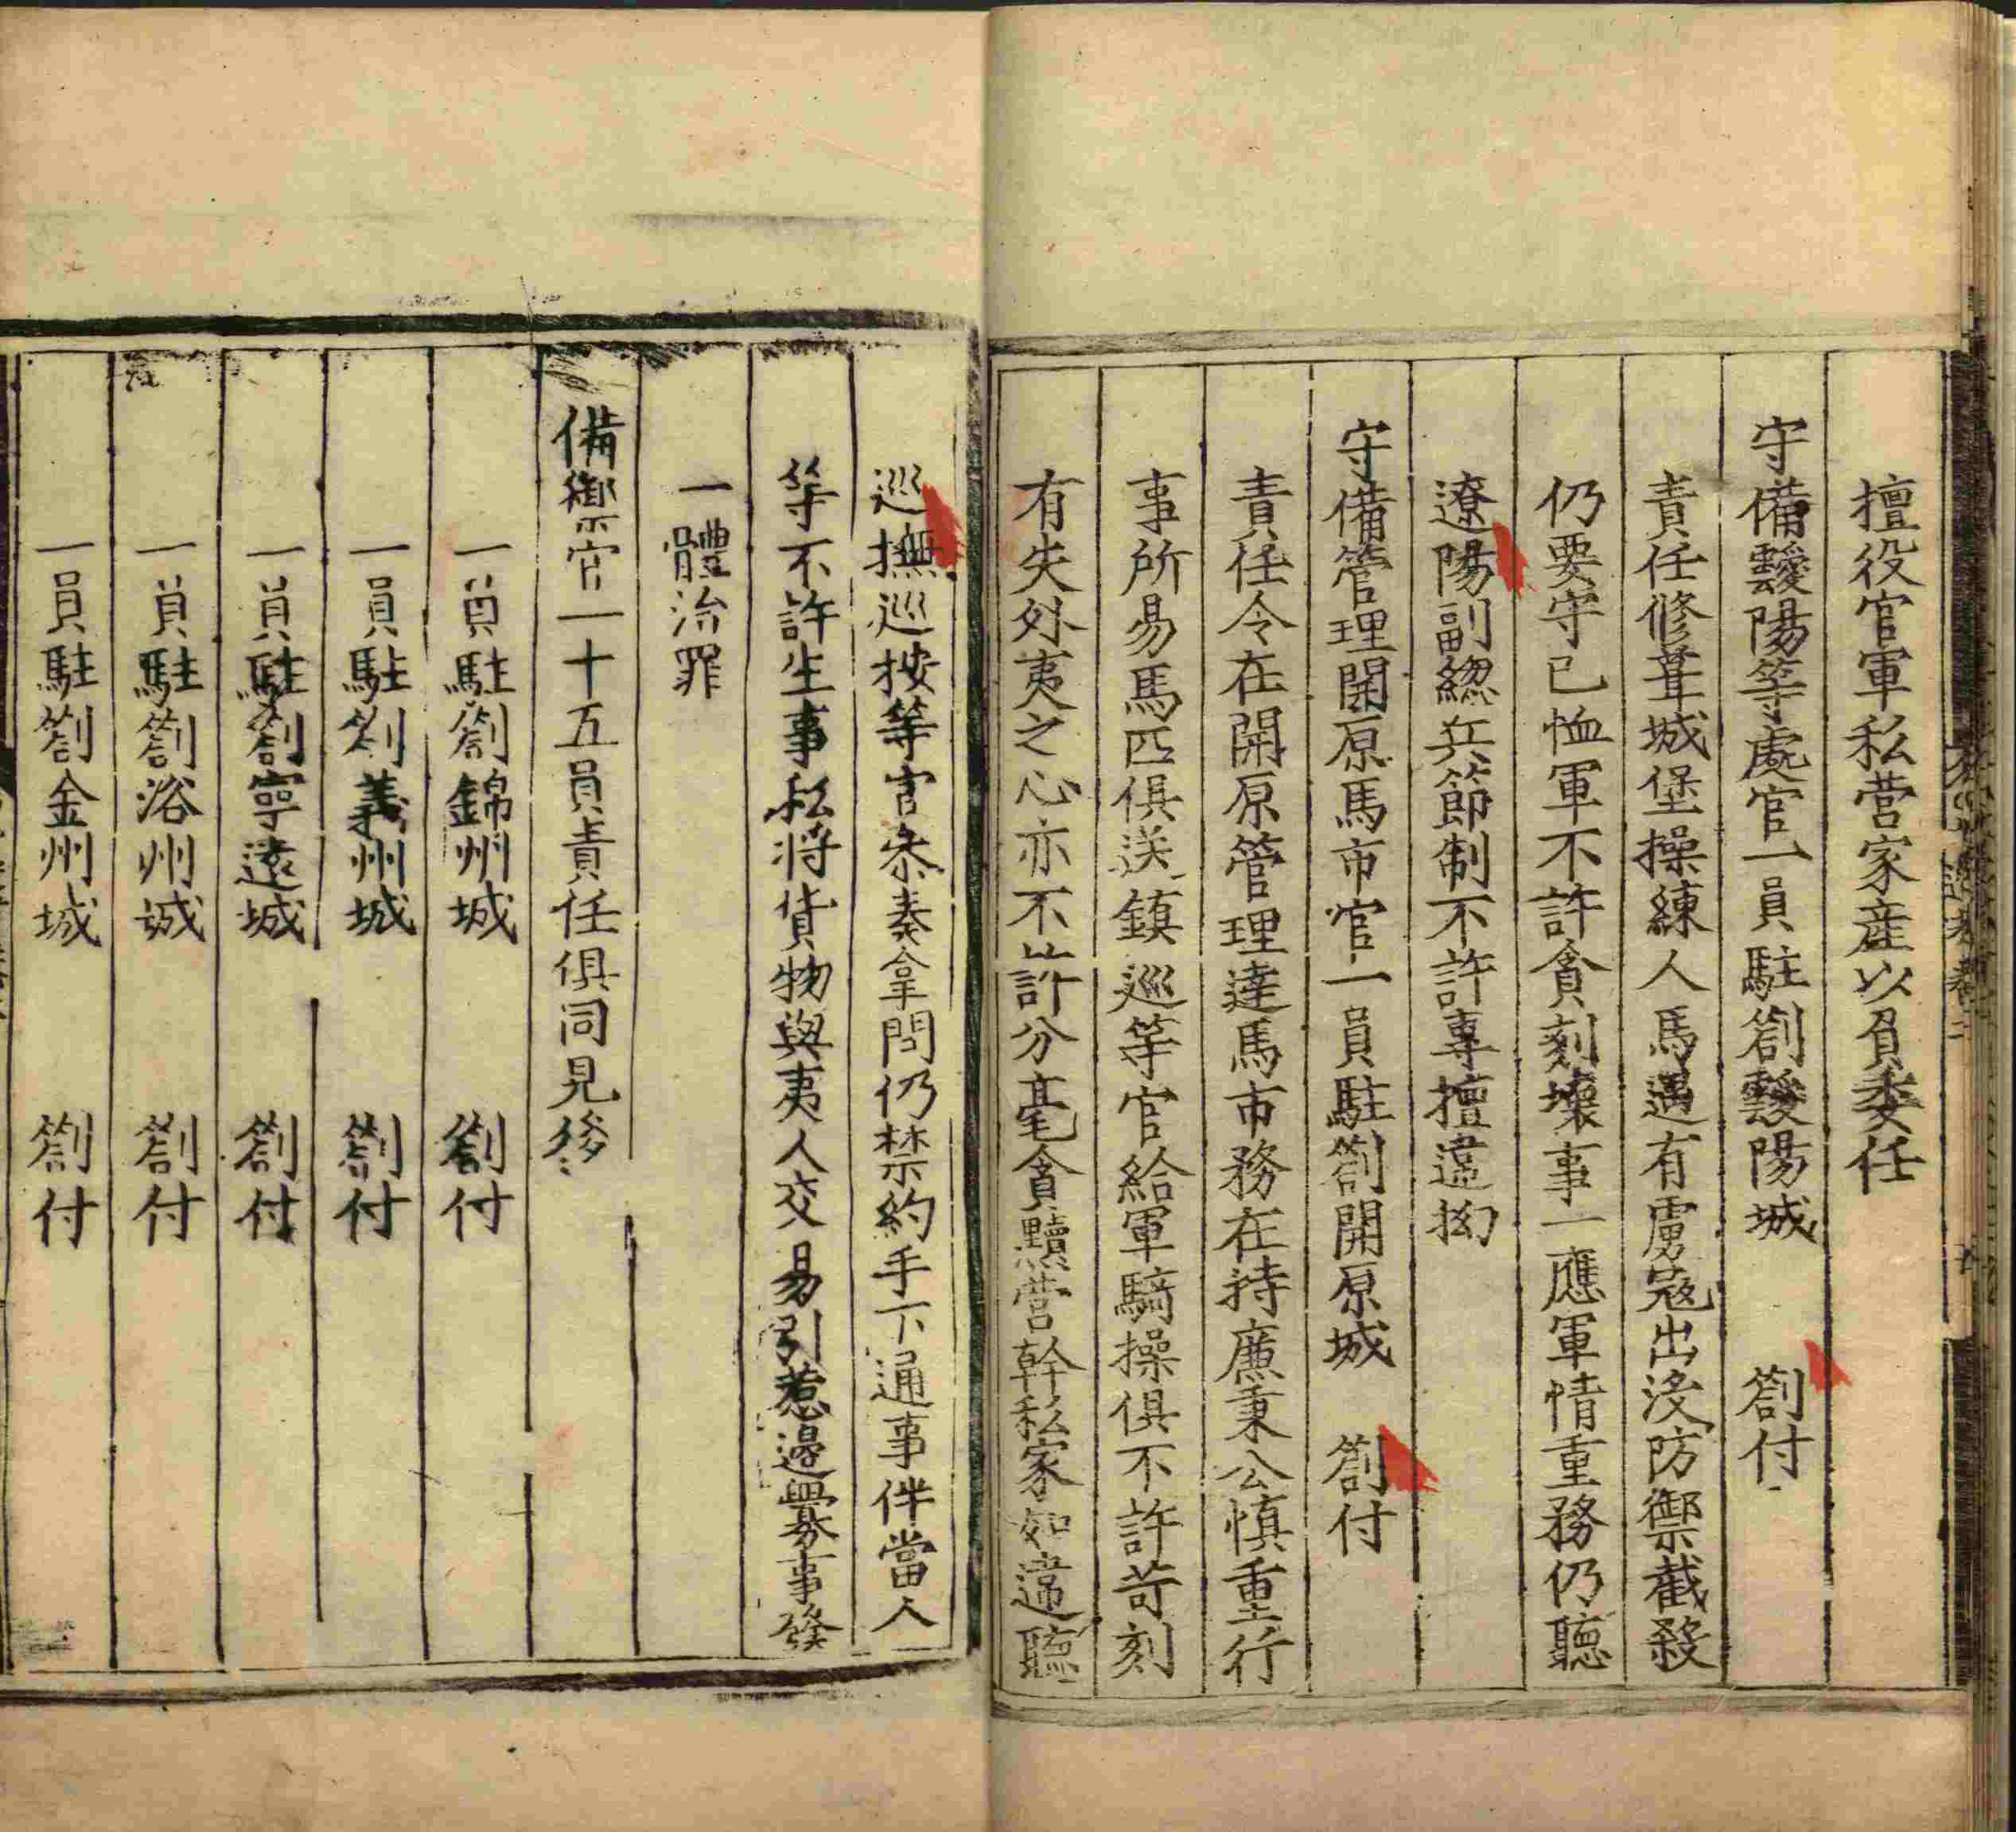 擅役官軍私營家產以負委任
守備靉陽等處官一員駐劄靉陽城 劄付
責任修葺城堡操練人馬遇有虜寇出沒防禦截殺
仍要守己恤軍不許貪刻壞事一應軍情重務仍聽
遼陽副總兵節制不許專擅違拗
守備管理開原馬市官一員駐劄開原城 劄付
責任令在開原管理達馬市務在持廉秉公慎重行
事所易馬匹俱送鎮巡等官給軍騎操俱不許苛刻
有失外夷之心亦不許分毫貪黷營幹私家如違聽
巡撫巡按等官叅奏拿問仍禁約手下通事伴當人
等不許生事私將貨物與夷人交易引惹邊釁事發
一體治罪
備禦官一十五員責任俱同見後
一員駐劄錦州城 劄付
一員駐劄義州城 劄付
一員駐劄寧遠城 劄付
一員駐劄浴州城 劄付
一員駐劄金州城 劄付